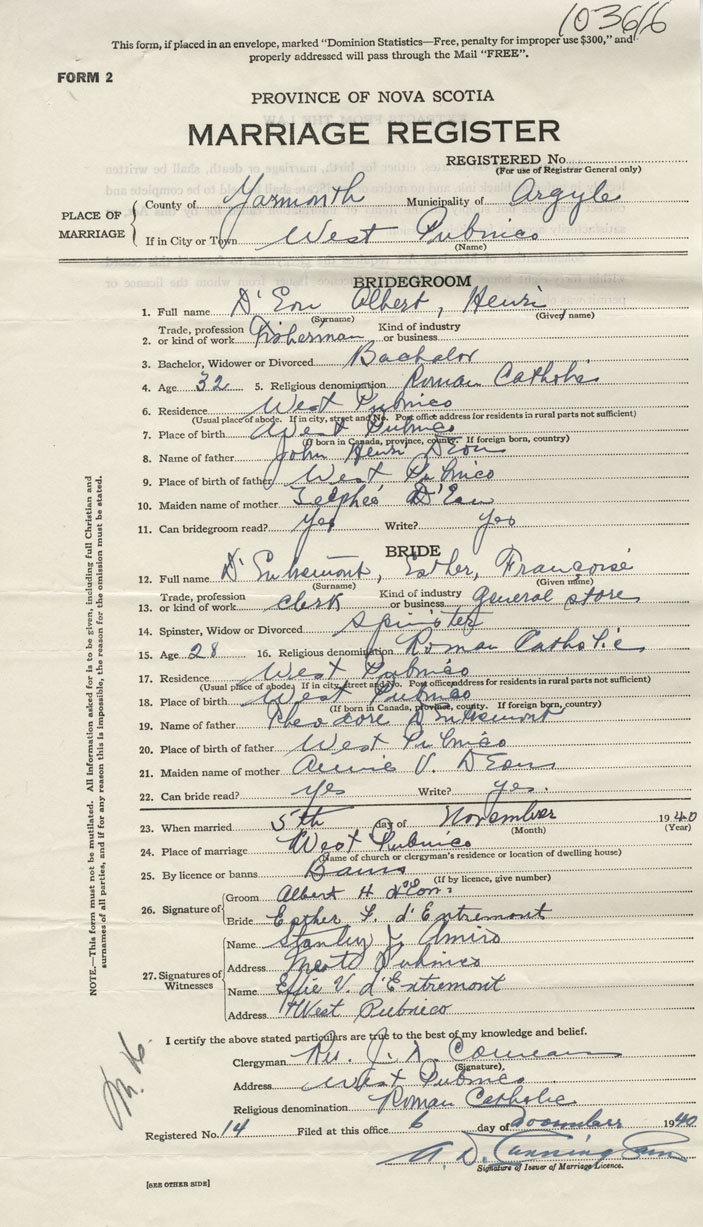 103616
This form, if placed in an envelope, marked "Dominion Statistics—Free, penalty for improper use $300," and
properly addressed will pass through the Mail "FREE".
FORM 2
PROVINCE OF NOVA SCOTIA
MARRIAGE REGISTER
REGISTERED No.
(For use of Registrar General only)
PLACE OF MARRIAGE
County of Yarmouth Municipality of Argyle
If in City or Town West Pubnico
(Name)
BRIDEGROOM
1. Full name D'Eon Albert, Henri
(Surname) (Given name)
2. Trade, profession or kind of work Fisherman Kind of industry or business
3. Bachelor, Widower or Divorced Bachelor
4. Age 32 5. Religious denomination Roman Catholic
6. Residence West Pubnico
(Usual place of abode. If in city, street and No. Post office address for residents in rural parts not sufficient)
7. Place of birth West Pubnico
(If born in Canada, province, county. If foreign born, country)
8. Name of father John Henri D'Eon
9. Place of birth of father West Pubnico
10. Maiden name of mother D'Eon
11. Can bridegroom read? Yes Write? Yes
BRIDE
12. Full name D'Entremont, Esther, Françoise
(Surname) (Given name)
13. Trade, profession or kind of work clerk Kind of industry or business general store
14. Spinster, Widow or Divorced Spinster
15. Age 28 16. Religious denomination Roman Catholic
17. Residence West Pubnico
(Usual place of abode. If in city, street and No. Post office address for residents in rural parts not sufficient)
18. Place of birth West Pubnico
(If born in Canada, province, county. If foreign born, country)
19. Name of father Theodore D'Entremont
20. Place of birth of father West Pubnico
21. Maiden name of mother Annie V. D'Eon
22. Can bride read? yes Write? yes.
23. When married 5th day of November 1940
(Month) (Year)
24. Place of marriage West Pubnico
(Name of church or clergyman's residence or location of dwelling house)
25. By licence or banns Banns
(If by licence, give number)
26. Signature of
Groom Albert H d'Eon
Bride Esther F. d'Entremont
27. Signatures of Witnesses
Name Stanley J. Amiro
Address West Pubnico
Name Effie V. d'Entremont
Address West Pubnico
I certify the above stated particulars are true to the best of my knowledge and belief.
Clergyman Rev. J. A. Comeau
(Signature)
Address West Pubnico
Religious denomination Roman Catholic
Registered No. 14 Filed at this office 6 day of 1940
Signature of Issuer of Marriage Licence.
[SEE OTHER SIDE]
NOTE.—This form must not be mutilated. All information asked for is to be given, including full Christian and
surnames of all parties, and if for any reason this is impossible, the reason for the omission must be stated.